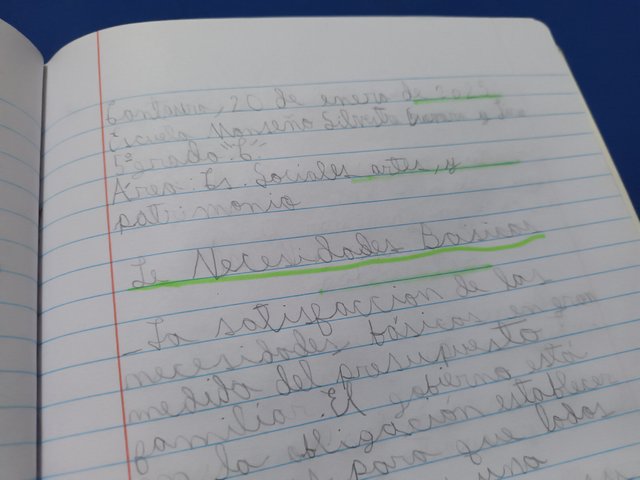 Cantaura, 20 de enero de 2025
Escuela Monseño Silvestre Guevara y Lira
5º grado "C"
Área: Cs. Sociales artes, y
patrimonio
Le Necesidades Basicas
-La satisfaccion de las
necesidades básicas, en gran
medida del presupuesto
familiar. El gobierno está
en la obligación establecer
para que todos
una